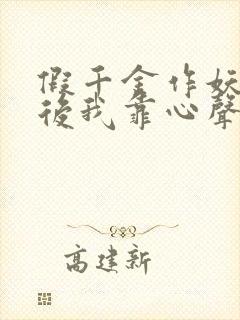 假千金作妖
後我靠心聲
高建新